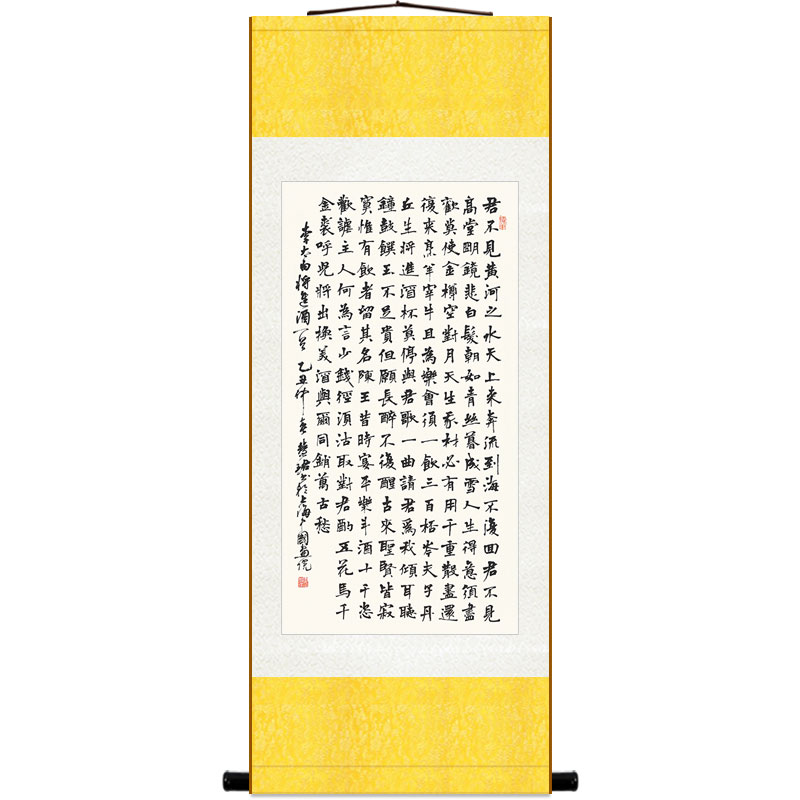 君不見黃河之水天上來奔流到海不復回君不見
高堂明鏡悲白髮朝如青絲暮成雪人生得意須盡
歡莫使金樽空對月天生我材必有用千重散盡還
復來烹羊宰牛且為樂會須一飲三百杯岑夫子丹
丘生將進酒杯莫停與君歌一曲請君為我傾耳聽
鐘鼓饌玉不足貴但願長醉不復醒古來聖賢皆寂
寞惟有飲者留其名陳王昔時宴平樂斗酒十千恣
歡謔主人何為言少錢徑須沽取對君酌五花馬千
金裘呼兒將出換美酒與爾同銷萬古愁
李太白將進酒一首 乙丑仲春 書於上海中國畫院